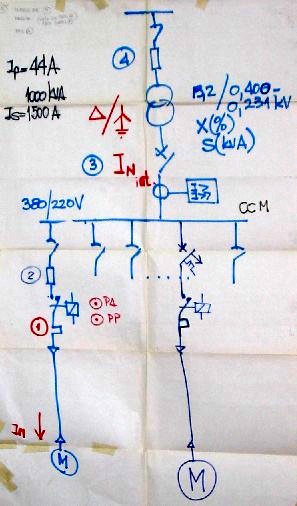 4
Ip=44A
1000 kVA
Is=1500A
13,2/0,400-
0,231 kV
X(%)
S(kVA)
Δ/
3
IN
380/220V
CCM
2
1
PA
PP
IM
M
M